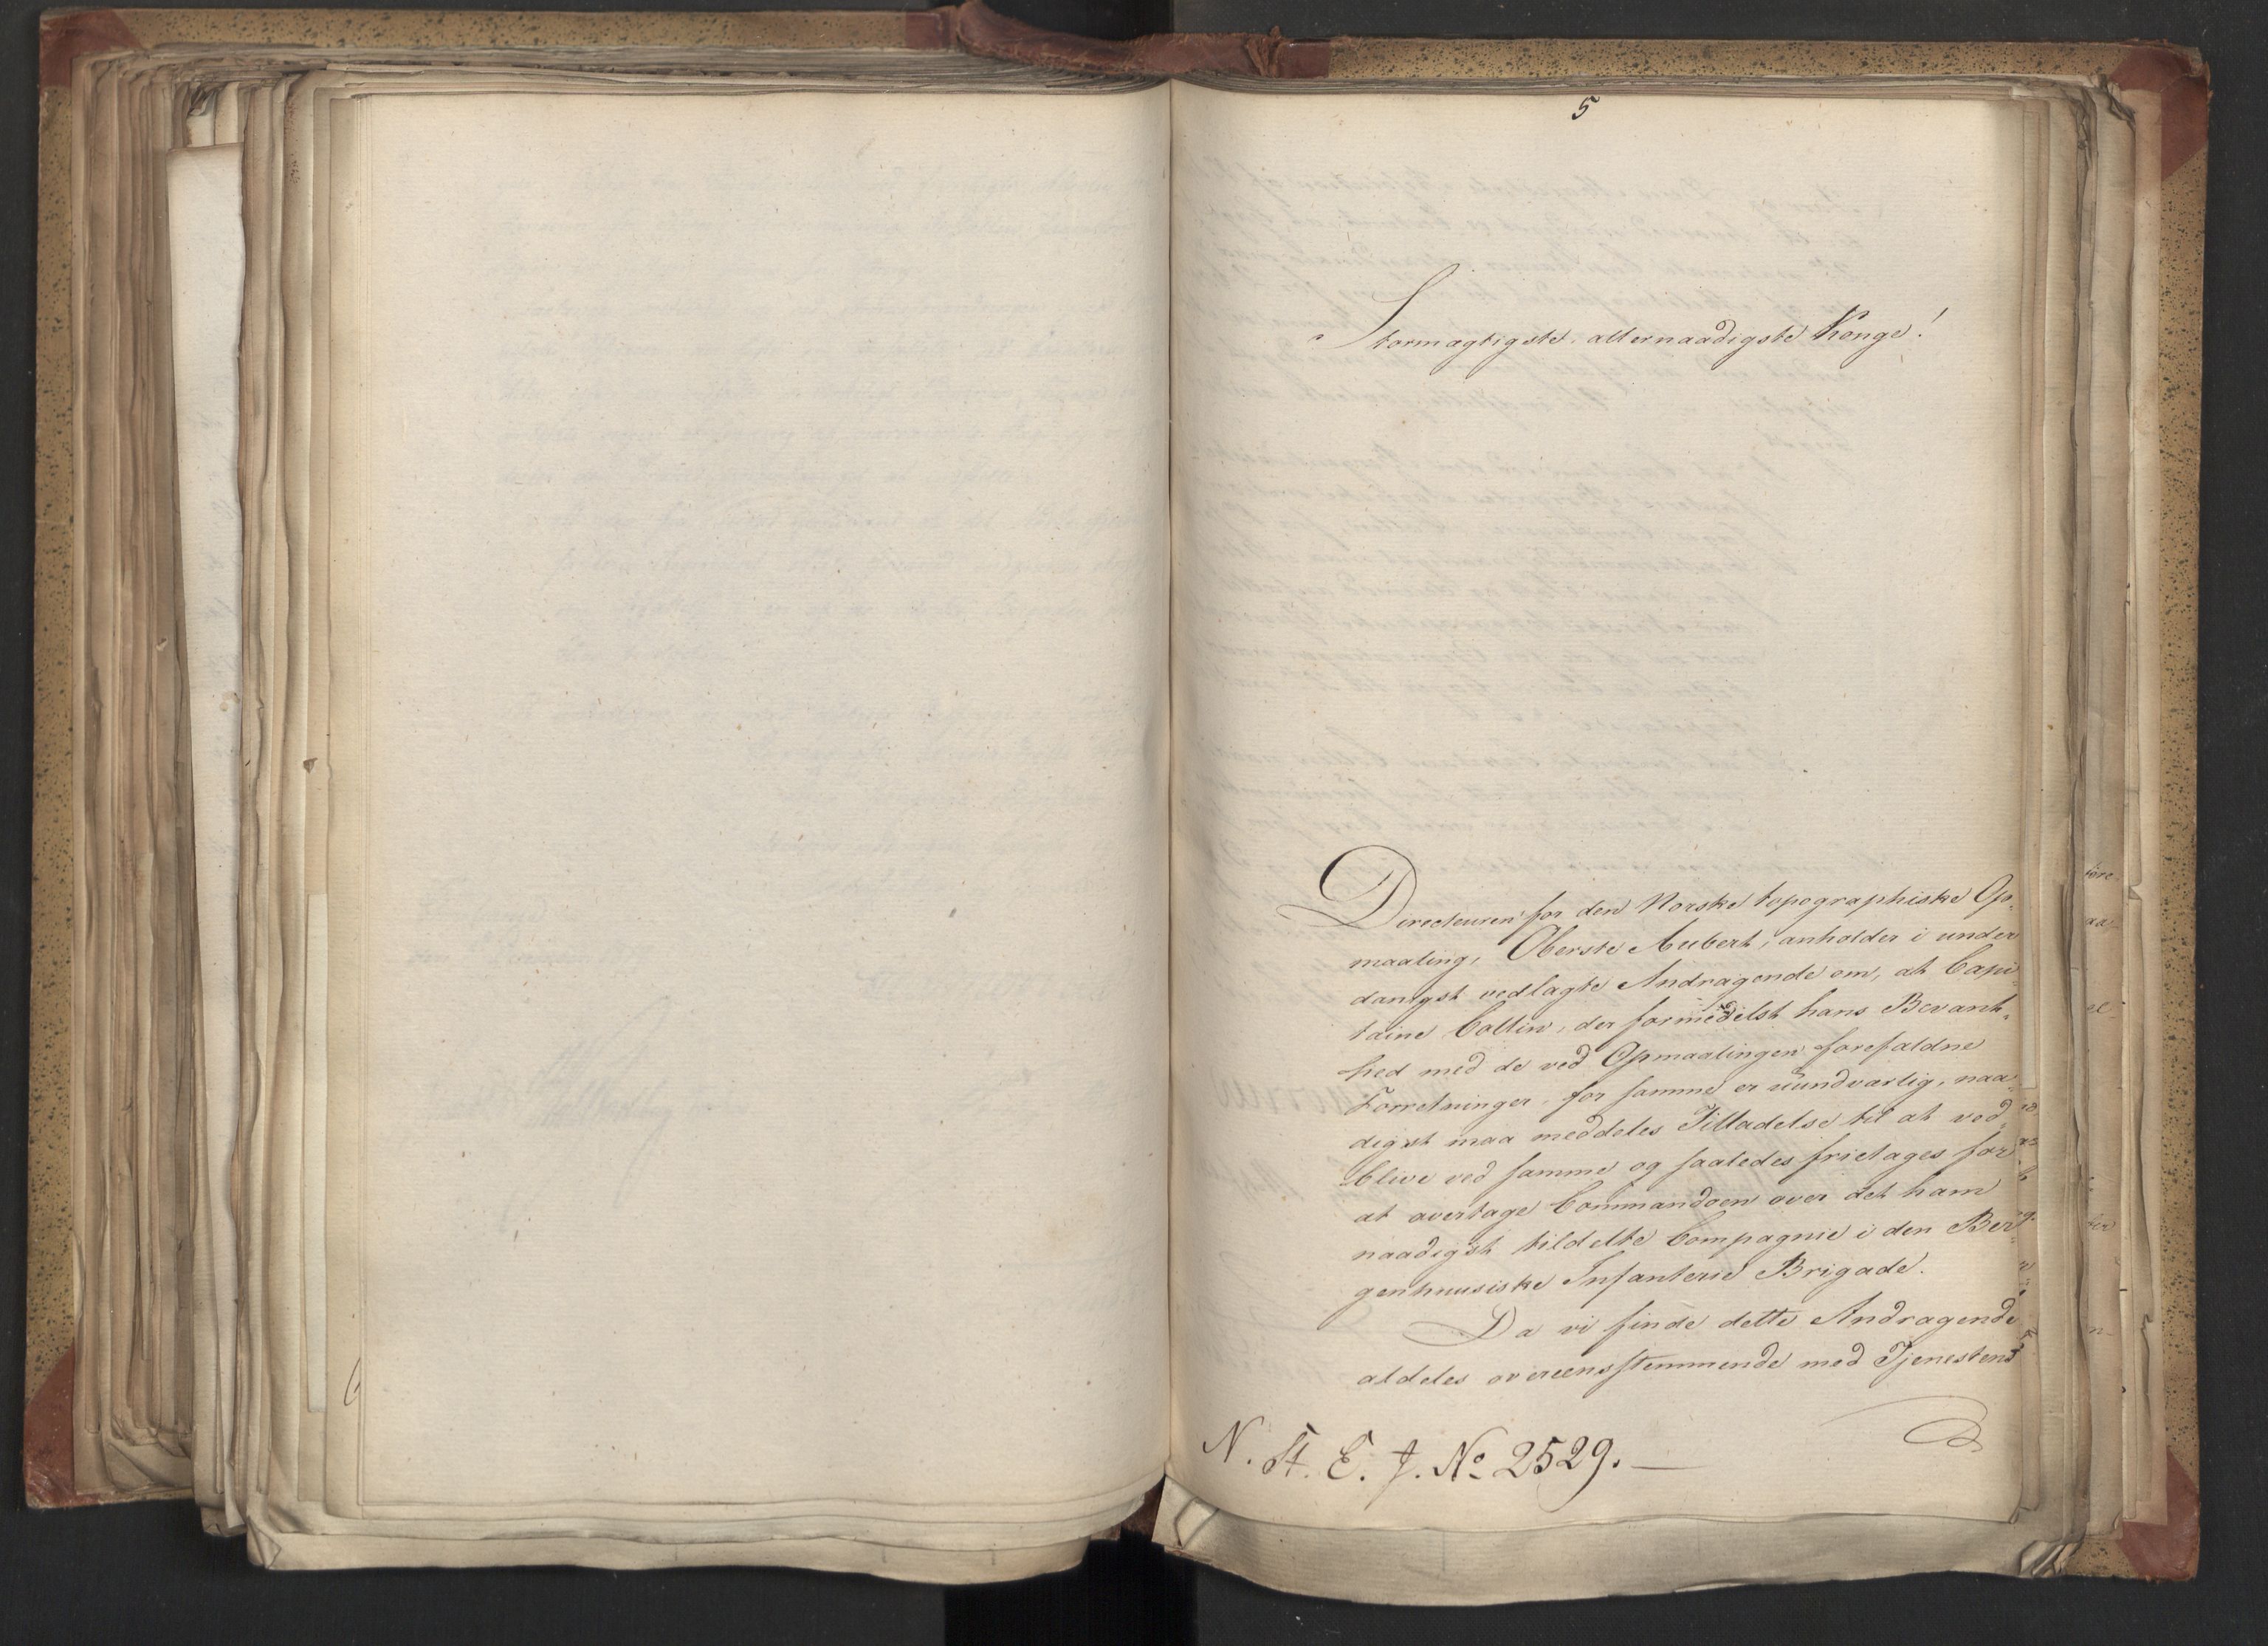 5
Stormægtigste, allernaadigste Konge!
Directeuren for den Norske topographiske Op-
maaling, Oberste Aubert, anholder i under
danigst vedlagte Andragende om, at Capi
taine Collin, der formedelst hans Bevant-
hed med de ved Opmaalingen forefaldne
Forretninger, for samme er uundværlig, naa-
digst maa meddeles Tilladelse til at ved-
blive ved samme og saaledes frietages for
at overtage Commandoen over det ham
naadigst tildelte Compagnie i den Ber-
genhuusiske Infanterie Brigade.
Da vi finde dette Andragende
aldeles overeensstemmende med Tjenestens
N. St. E. J. No 2529.